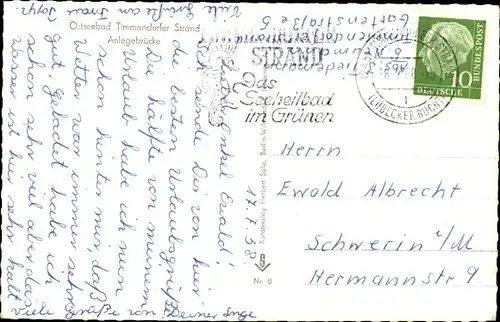 Viele Grüße an Frau Jony.
Ostseebad Timmendorfer Strand
Anlegebrücke
Lieber Onkel Ewald!
Ich sende Dir von hier
die besten Urlaubsgrüße.
Die hälfte von meinem
Urlaub habe ich nun
schon hinter mir, daß
Wetter war immer sehr
gut gebadet habe ich
schon sehr viel aber das
ist hir sehr kalt
Viele Grüße von Deiner Inge
17.7.58
Kunstverlag Herbert Solle, Berlin-W
Nr. 8
STRAND
Das
Seeheilbad
im Grünen
Abs.
Timmendorferstrand
Gartenstraße 5
(LÜBECKER BUCHT)
10
DEUTSCHE
BUNDESPOST
Herrn
Ewald Albrecht
Schwerin i/M
Hermannstr 9